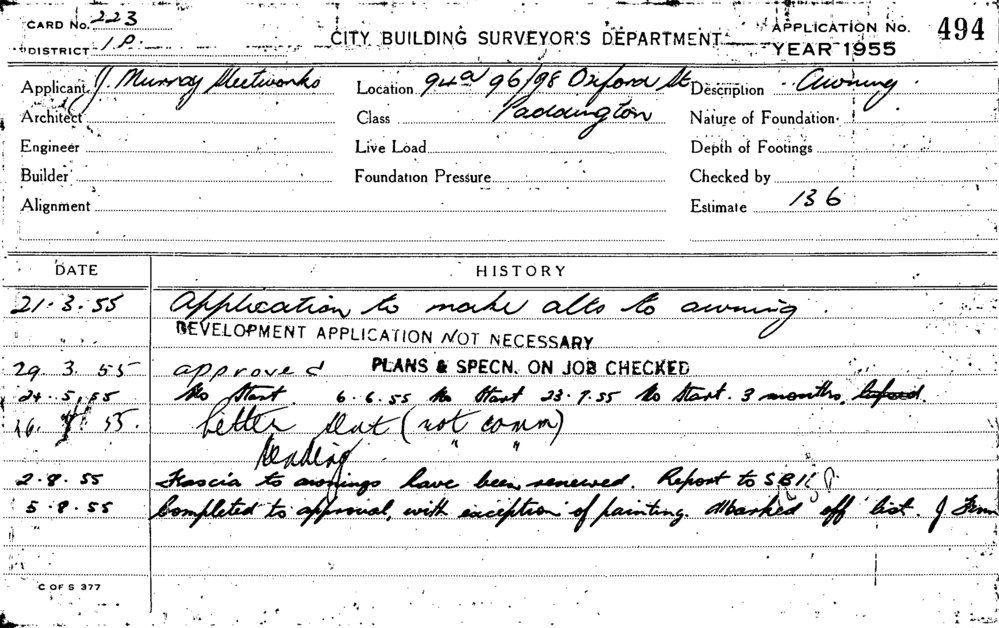 CARD No. 223
DISTRICT 1P.
CITY BUILDING SURVEYOR'S DEPARTMENT
APPLICATION No. 494
YEAR 1955
Applicant J. Murray Steelworks Location 94a 96/98 Oxford St Description Awning
Architect Class Paddington Nature of Foundation
Engineer Live Load Depth of Footings
Builder Foundation Pressure Checked by
Alignment Estimate 136
DATE HISTORY
21.3.55 Application to make alts to awning.
DEVELOPMENT APPLICATION NOT NECESSARY
29.3.55 approved PLANS & SPECN. ON JOB CHECKED
24.5.55 No Start. 6.6.55 No Start 23.7.55 No Start. 3 months
16. 55. Letter sent (not comm)
" "
2.8.55 Fascia to awnings have been renewed. Report to SBI
5.8.55 Completed to approval, with exception of painting. Marked off list. J
C OF S 377